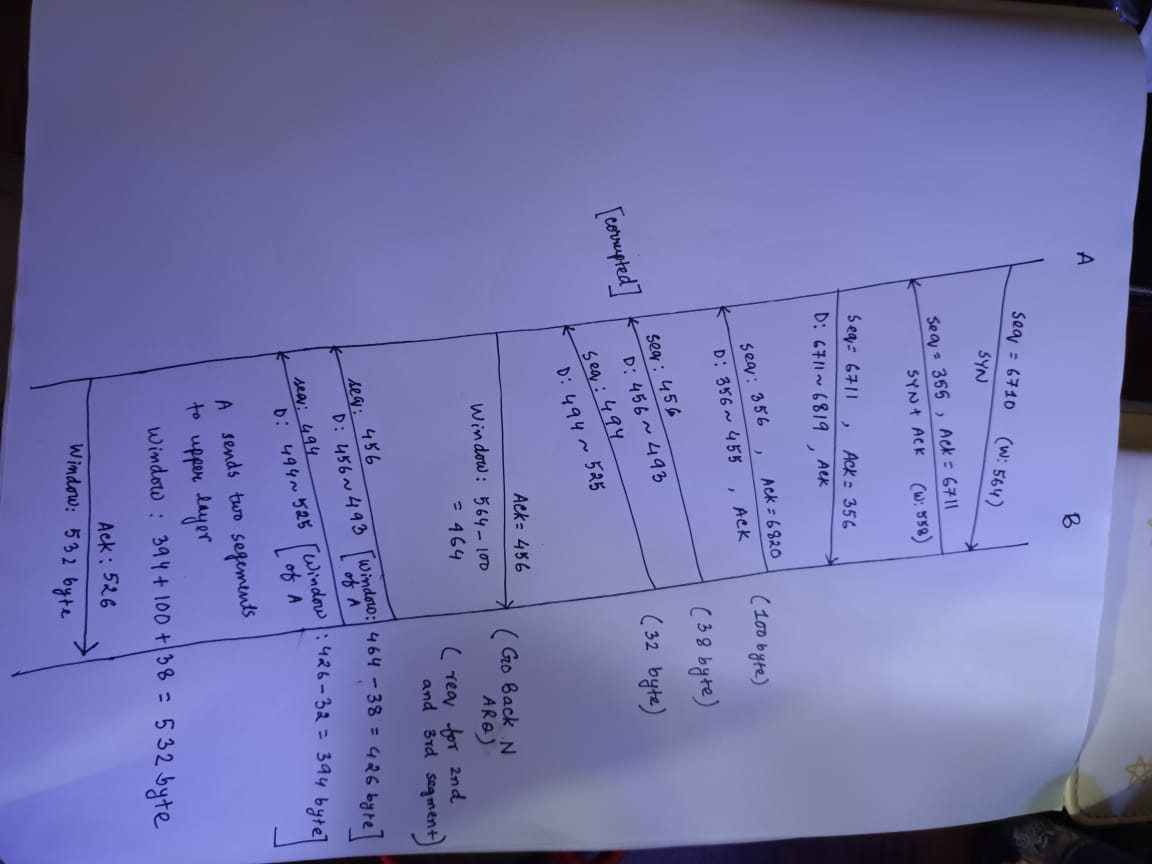 A
B
Seq = 6710 (W: 564)
SYN
Seq = 355 , Ack = 6711
SYN + ACK (W: 558)
Seq = 6711 , Ack = 356
D: 6711 ~ 6819 , Ack
seq: 356 , Ack = 6820 (100 byte)
D: 356 ~ 455 , ACK
(38 byte)
seq: 456
D: 456 ~ 493
(32 byte)
[corrupted]
seq: 494
D: 494 ~ 525
Ack = 456 (Go Back N
ARQ)
Window: 564 - 100
= 464
(req for 2nd
and 3rd segment)
seq: 456
D: 456 ~ 493 [Window: 464 - 38 = 426 byte]
of A
seq: 494
D: 494 ~ 525 [Window : 426 - 32 = 394 byte]
of A
A sends two segements
to upper layer
Window : 394 + 100 + 38 = 532 byte
Ack: 526
Window: 532 byte